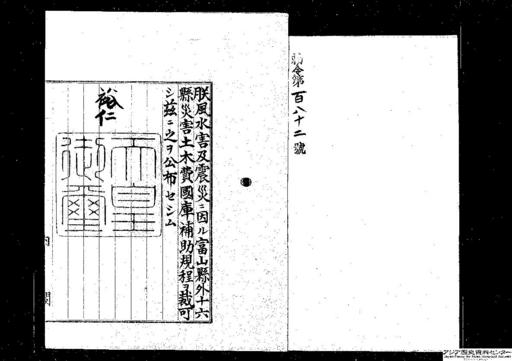 勅令第百八十二號
朕風水害及震災ニ因ル富山縣外十六
縣災害土木費國庫補助規程ヲ裁可
シ茲ニ之ヲ公布セシム
裕仁
天皇
御璽
内閣
アジア歴史資料センター